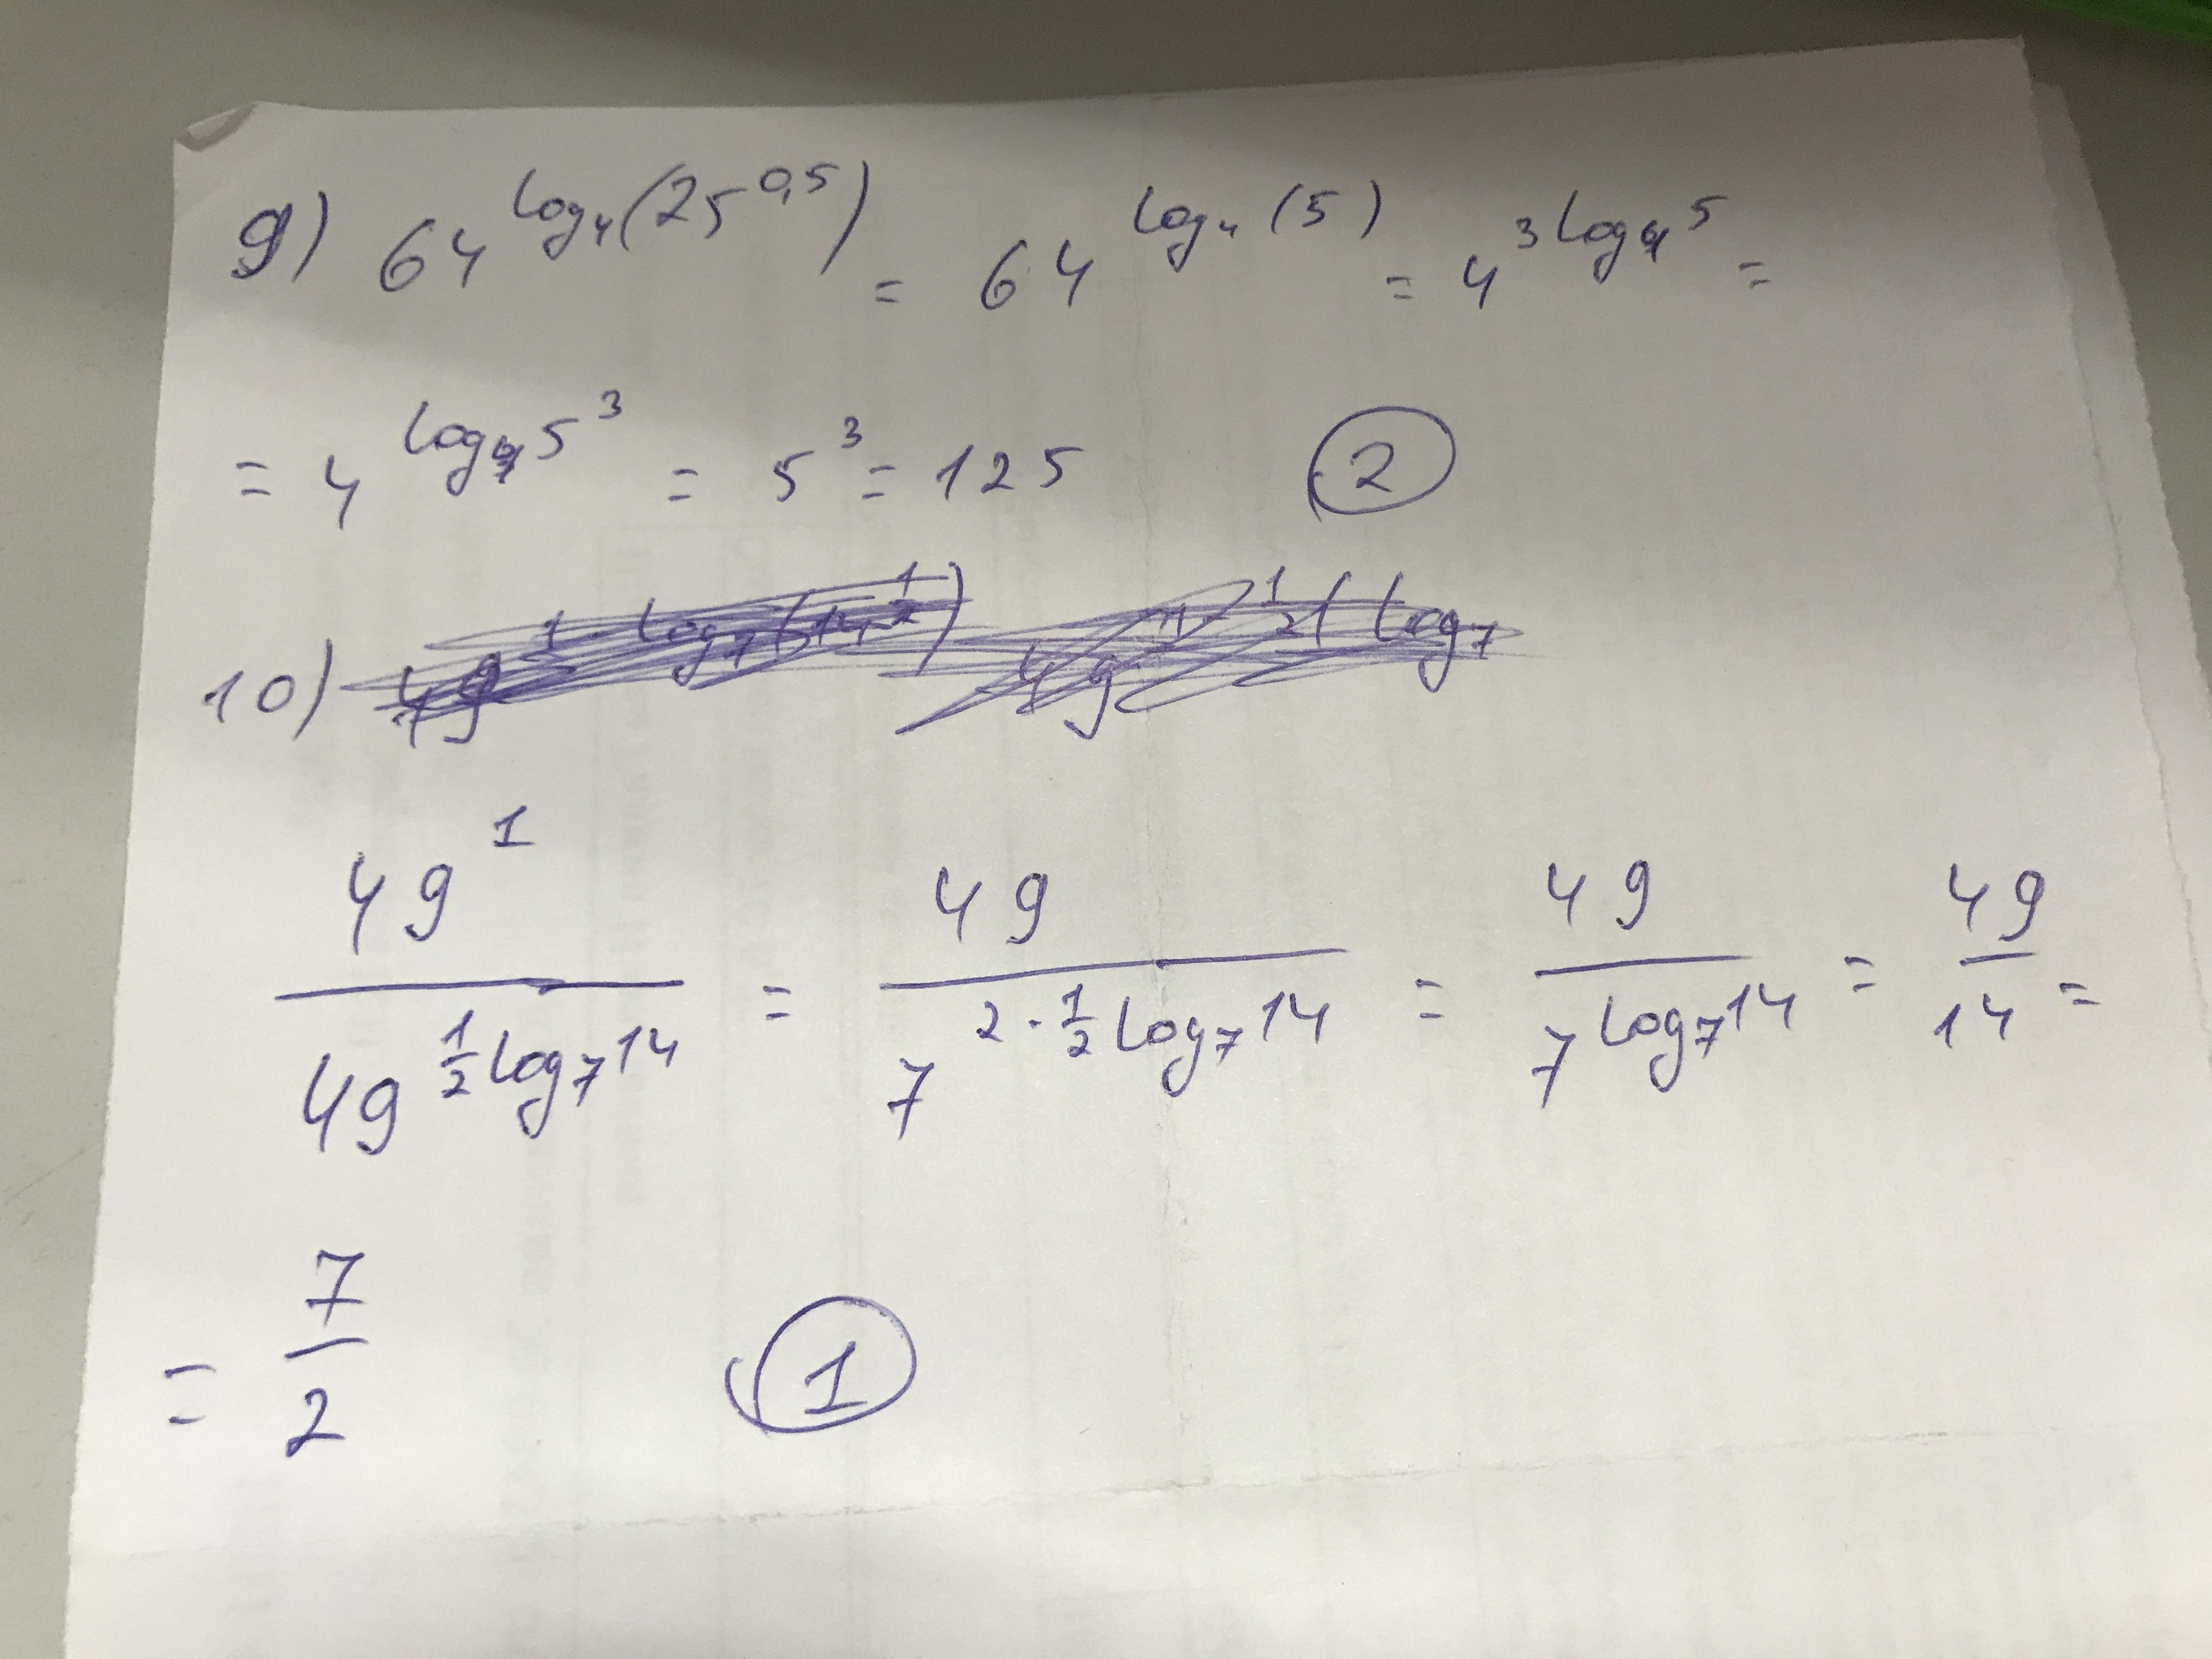 9) 64^{log₄(25^{0,5})} = 64^{log₄(5)} = 4^{3log₄5} =
= 4^{log₄5³} = 5³ = 125 2
10)
49¹/49^{1/2 log₇14} = 49/7^{2·1/2 log₇14} = 49/7^{log₇14} = 49/14 =
= 7/2 1